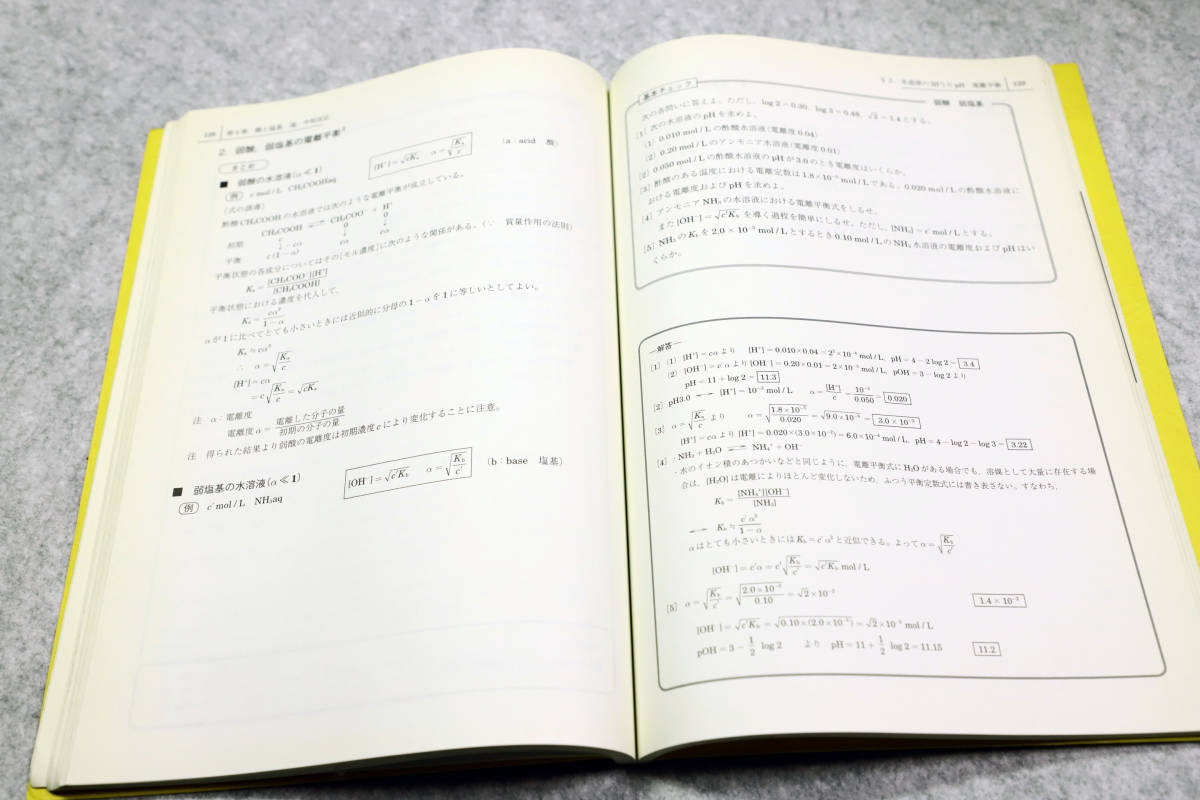 128 第4章 酸と塩基
2. 弱酸，弱塩基の電離平衡
まとめ
■ 弱酸の水溶液(α≪1) [H⁺]=√cKₐ α=√(Kₐ/c) (a：acid 酸)
例 c mol/L CH₃COOHaq
(式の誘導)
酢酸CH₃COOHの水溶液では次のような電離平衡が成立している。
CH₃COOH ⇄ CH₃COO⁻ + H⁺
初期 c 0 0
↓−cα ↓ ↓
平衡 c(1−α) cα cα
平衡状態の各成分についてはその[モル濃度]に次のような関係がある。(∵ 質量作用の法則)
Kₐ=[CH₃COO⁻][H⁺]/[CH₃COOH]
平衡状態における濃度を代入して，
Kₐ=cα²/(1−α)
αが1に比べてとても小さいときには近似的に分母の1−αを1に等しいとしてよい。
Kₐ≒cα²
∴ α=√(Kₐ/c)
[H⁺]=cα
=c√(Kₐ/c)=√cKₐ
注 α：電離度
電離度α=電離した分子の量/初期の分子の量
注 得られた結果より弱酸の電離度は初期濃度cにより変化することに注意。
■ 弱塩基の水溶液(α≪1) [OH⁻]=√c′K_b α=√(K_b/c′) (b：base 塩基)
例 c′mol/L NH₃aq
§2. 水溶液の[H⁺]とpH，電離平衡 129
基本チェック
弱酸 弱塩基
次の各問いに答えよ。ただし，log2=0.30，log3=0.48，√2=1.4とする。
[1] 次の水溶液のpHを求めよ。
(1) 0.010mol/Lの酢酸水溶液(電離度0.04)
(2) 0.20mol/Lのアンモニア水溶液(電離度0.01)
[2] 0.050mol/Lの酢酸水溶液のpHが3.0のとき電離度はいくらか。
[3] 酢酸のある温度における電離定数は1.8×10⁻⁵mol/Lである。0.020mol/Lの酢酸水溶液に
おける電離度およびpHを求めよ。
[4] アンモニアNH₃の水溶液における電離平衡式をしるせ。
また[OH⁻]=√c′K_bを導く過程を簡単にしるせ。ただし，[NH₃]=c′mol/Lとする。
[5] NH₃のK_bを2.0×10⁻⁵mol/Lとするとき0.10mol/LのNH₃水溶液の電離度およびpHはい
くらか。
―解答―
[1] (1) [H⁺]=cαより [H⁺]=0.010×0.04=2²×10⁻⁴mol/L，pH=4−2log2= 3.4
(2) [OH⁻]=c′αより[OH⁻]=0.20×0.01=2×10⁻³mol/L，pOH=3−log2より
pH=11+log2= 11.3
[2] pH3.0 ⟷ [H⁺]=10⁻³mol/L α=[H⁺]/c=10⁻³/0.050= 0.020
[3] α=√(Kₐ/c) より α=√(1.8×10⁻⁵/0.020)=√9.0×10⁻⁴= 3.0×10⁻²
[H⁺]=cαより[H⁺]=0.020×(3.0×10⁻²)=6.0×10⁻⁴mol/L，pH=4−log2−log3= 3.22
[4] ・NH₃+H₂O ⇄ NH₄⁺+OH⁻
・水のイオン積のあつかいなどと同じように，電離平衡式にH₂Oがある場合でも，溶媒として大量に存在する場
合は，[H₂O]は電離によりほとんど変化しないため，ふつう平衡定数式には書き表さない。すなわち，
K_b=[NH₄⁺][OH⁻]/[NH₃]
⟷ K_b≒c′α²/(1−α)
αはとても小さいときにはK_b=c′α²と近似できる。よってα=√(K_b/c′)
[OH⁻]=c′α=c′√(K_b/c′)=√c′K_b mol/L
[5] α=√(K_b/c′)=√(2.0×10⁻⁵/0.10)=√2×10⁻² 1.4×10⁻²
[OH⁻]=√c′K_b=√0.10×(2.0×10⁻⁵)=√2×10⁻³mol/L
pOH=3−1/2 log2 より pH=11+1/2 log2=11.15 11.2